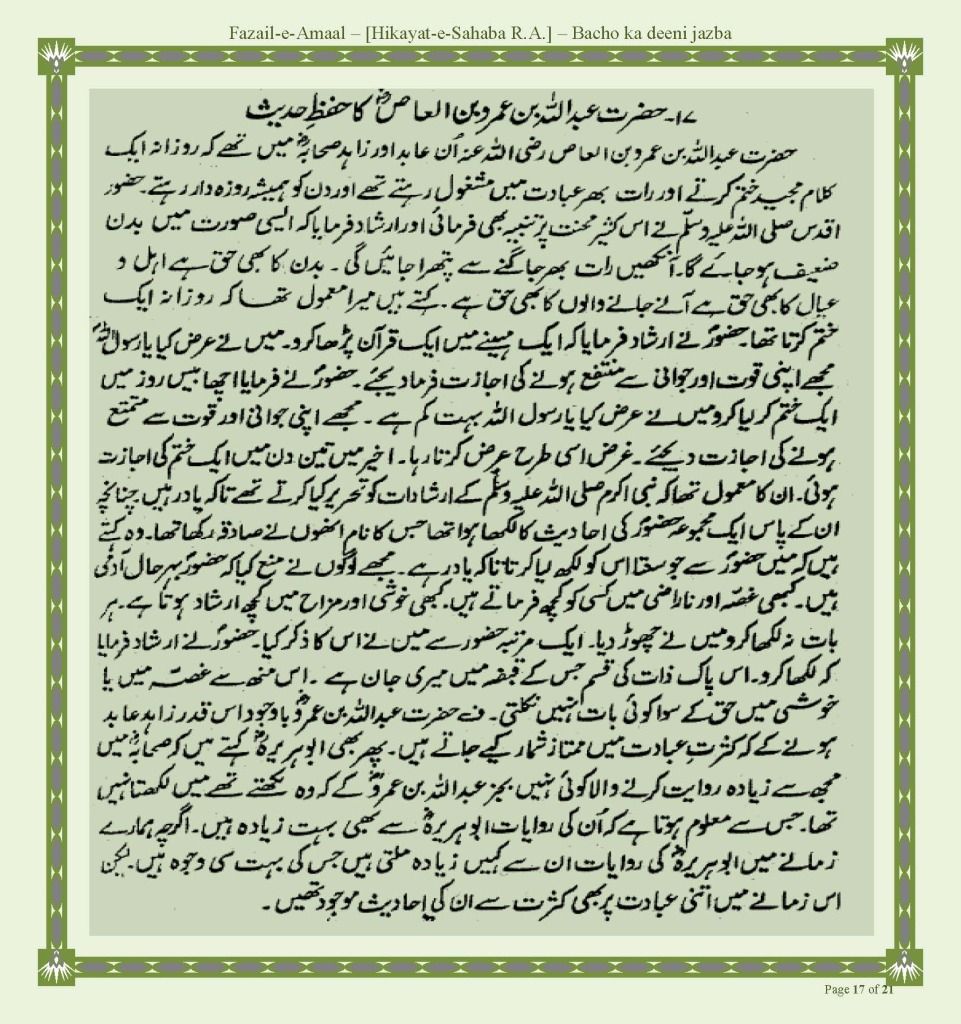 Fazail-e-Amaal – [Hikayat-e-Sahaba R.A.] – Bacho ka deeni jazba
۱۷۔ حضرت عبداللہ بن عمرو بن العاصؓ کا حفظِ حدیث
حضرت عبداللہ بن عمرو بن العاص رضی اللہ عنہ اُن عابد اور زاہد صحابہؓ میں تھے کہ روزانہ ایک
کلام مجید ختم کرتے اور رات بھر عبادت میں مشغول رہتے تھے اور دن کو ہمیشہ روزہ دار رہتے۔ حضورِ
اقدس صلی اللہ علیہ وسلّم نے اس کثیر محنت پر تنبیہ بھی فرمائی اور ارشاد فرمایا کہ ایسی صورت میں بدن
ضعیف ہو جائے گا۔ آنکھیں رات بھر جاگنے سے پتھرا جائیں گی۔ بدن کا بھی حق ہے اہل و
عیال کا بھی حق ہے آنے جانے والوں کا بھی حق ہے۔ کہتے ہیں میرا معمول تھا کہ روزانہ ایک
ختم کرتا تھا۔ حضورؐ نے ارشاد فرمایا کہ ایک مہینے میں ایک قرآن پڑھا کرو۔ میں نے عرض کیا یا رسول اللہؐ
مجھے اپنی قوت اور جوانی سے منتفع ہونے کی اجازت فرما دیجئے۔ حضورؐ نے فرمایا اچھا بیس روز میں
ایک ختم کر لیا کرو میں نے عرض کیا یا رسول اللہ بہت کم ہے۔ مجھے اپنی جوانی اور قوت سے متمتع
ہونے کی اجازت دیجئے۔ غرض اسی طرح عرض کرتا رہا۔ اخیر میں تین دن میں ایک ختم کی اجازت
ہوئی۔ ان کا معمول تھا کہ نبی اکرم صلی اللہ علیہ وسلّم کے ارشادات کو تحریر کیا کرتے تھے تاکہ یاد رہیں چنانچہ
ان کے پاس ایک مجموعہ حضورؐ کی احادیث کا لکھا ہوا تھا جس کا نام انھوں نے صادقہ رکھا تھا۔ وہ کہتے
ہیں کہ میں حضورؐ سے جو سنتا اس کو لکھ لیا کرتا تاکہ یاد رہے۔ مجھے لوگوں نے منع کیا کہ حضورؐ بہرحال آدمی
ہیں۔ کبھی غصّہ اور ناراضی میں کسی کو کچھ فرماتے ہیں۔ کبھی خوشی اور مزاح میں کچھ ارشاد ہوتا ہے۔ ہر
بات نہ لکھا کرو میں نے چھوڑ دیا۔ ایک مرتبہ حضور سے میں نے اس کا ذکر کیا۔ حضورؐ نے ارشاد فرمایا
کہ لکھا کرو۔ اس پاک ذات کی قسم جس کے قبضہ میں میری جان ہے۔ اِس منھ سے غصّہ میں یا
خوشی میں حق کے سوا کوئی بات نہیں نکلتی۔ ف حضرت عبداللہ بن عمروؓ باوجود اس قدر زاہد عابد
ہونے کے کہ کثرتِ عبادت میں ممتاز شمار کیے جاتے ہیں۔ پھر بھی ابوہریرہؓ کہتے ہیں کہ صحابہؓ میں
مجھ سے زیادہ روایت کرنے والا کوئی نہیں بجز عبداللہ بن عمروؓ کے کہ وہ لکھتے تھے میں لکھتا نہیں
تھا۔ جس سے معلوم ہوتا ہے کہ اُن کی روایات ابوہریرہؓ سے بھی بہت زیادہ ہیں۔ اگرچہ ہمارے
زمانے میں ابوہریرہؓ کی روایات ان سے کہیں زیادہ ملتی ہیں جس کی بہت سی وجوہ ہیں۔ لیکن
اس زمانے میں اتنی عبادت پر بھی کثرت سے ان کی احادیث موجود تھیں۔
Page 17 of 21